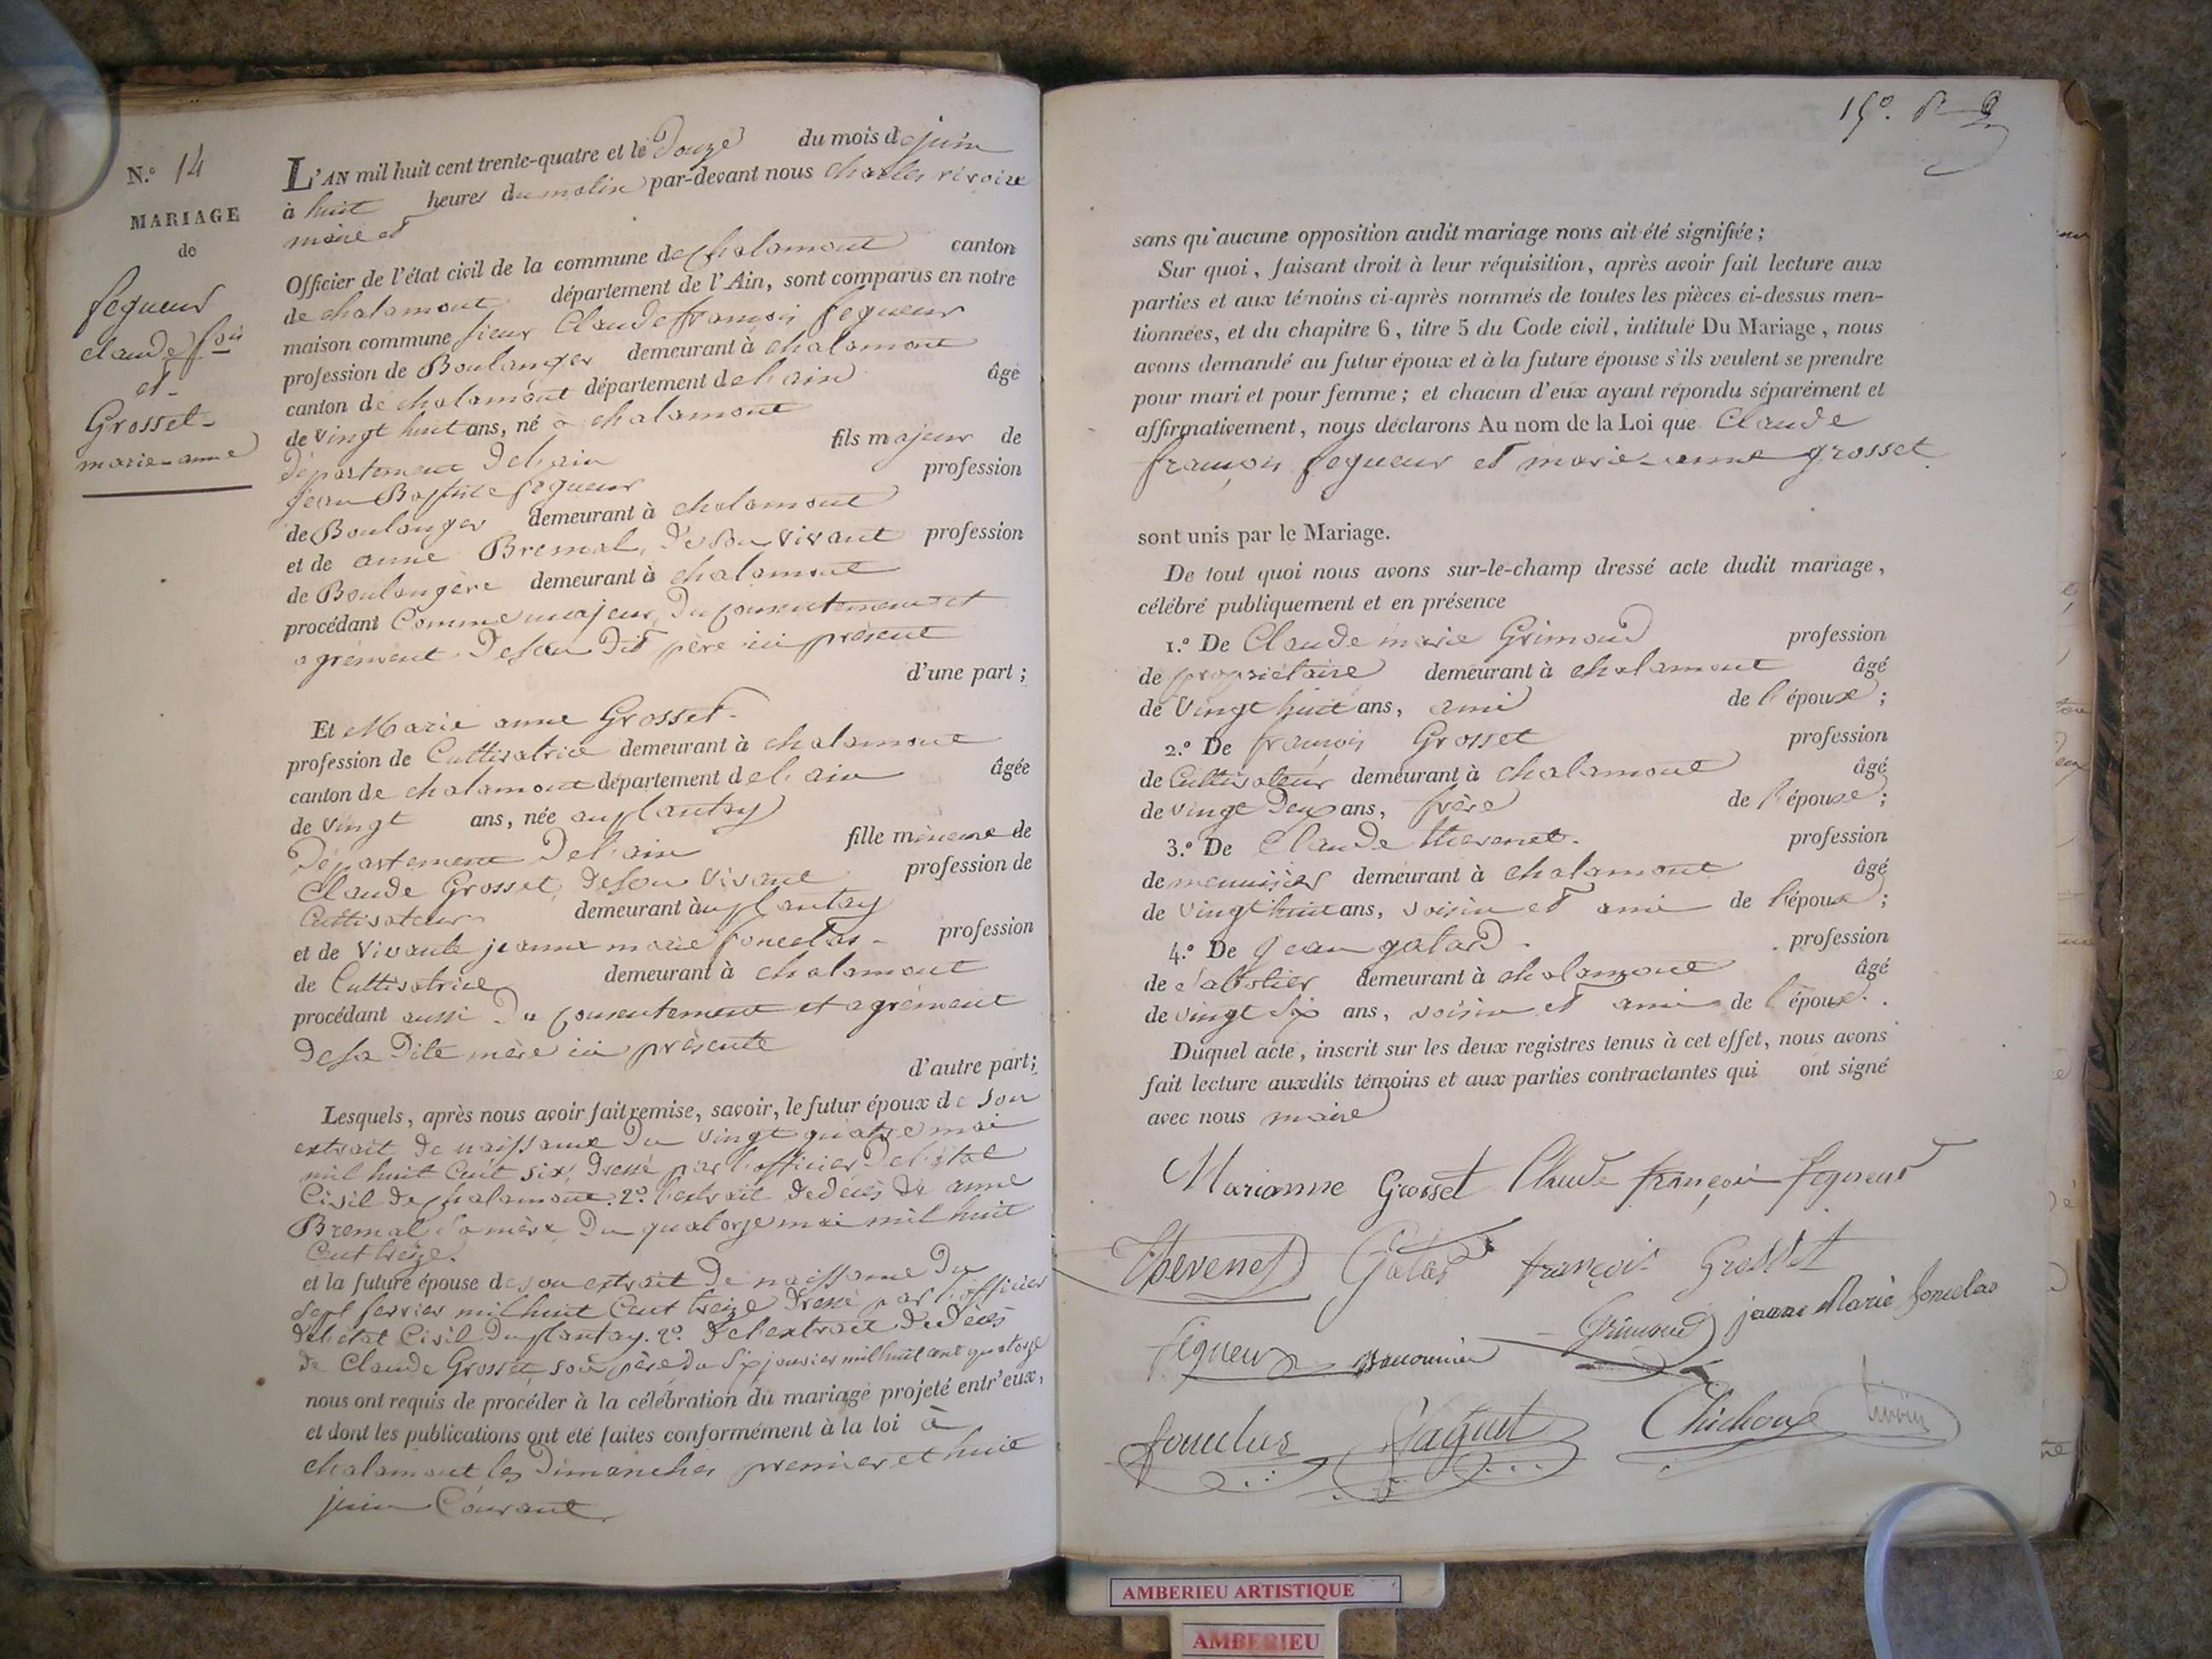 N.º 14
MARIAGE
de
fequeur
claude fois
et
Grosset
marie-anne
L'AN mil huit cent trente-quatre et le Douze du mois de juin
à huit heures du matin par-devant nous charles rivoire
maire et
Officier de l'état civil de la commune de chalamont canton
de chalamont département de l'Ain, sont comparus en notre
maison commune sieur Claude françois fequeur
profession de Boulanger demeurant à chalamont
canton de chalamont département de l'ain âgé
de vingt huit ans, né à chalamont
Département De l'ain fils majeur de
jean Baptiste fequeur profession
de Boulanger demeurant à chalamont
et de anne Bremal, De son vivant profession
de Boulangère demeurant à chalamont
procédant Comme majeur, Du consentement et
agrément De son Dit père ici présent
d'une part ;
Et Marie anne Grosset
profession de Cultivatrice demeurant à chalamont
canton de chalamont département de l'ain âgée
de vingt ans, née au plantay
Département De l'ain fille mineure de
Claude Grosset, De son vivant profession de
Cultivateur demeurant au plantay
et de vivante jeanne marie foncelas profession
de Cultivatrice demeurant à chalamont
procédant aussi Du consentement et agrément
De sa Dite mère ici présente
d'autre part;
Lesquels, après nous avoir fait remise, savoir, le futur époux de son
extrait de naissance Du vingt quatre mai
mil huit Cent six, Dressé par l'officier De l'état
Civil De chalamont. 2º l'extrait De décès De anne
Bremal sa mère Du quatorze mai mil huit
Cent treize.
et la future épouse de son extrait De naissance Du
sept fevrier mil huit Cent treize Dressé par l'officier
De l'état Civil Du plantay. 2º De l'extrait De Décès
De Claude Grosset son père du six janvier mil huit cent quatorze
nous ont requis de procéder à la célébration du mariage projeté entr'eux,
et dont les publications ont été faites conformément à la loi à
chalamont les Dimanches premier et huit
juin Courant
sans qu'aucune opposition audit mariage nous ait été signifiée ;
Sur quoi, faisant droit à leur réquisition, après avoir fait lecture aux
parties et aux témoins ci-après nommés de toutes les pièces ci-dessus men-
tionnées, et du chapitre 6, titre 5 du Code civil, intitulé Du Mariage, nous
avons demandé au futur époux et à la future épouse s'ils veulent se prendre
pour mari et pour femme ; et chacun d'eux ayant répondu séparément et
affirmativement, nous déclarons Au nom de la Loi que Claude
françois fequeur et marie-anne grosset
sont unis par le Mariage.
De tout quoi nous avons sur-le-champ dressé acte dudit mariage,
célébré publiquement et en présence
1.º De Claude marie Grimoud profession
de propriétaire demeurant à chalamont âgé
de Vingt huit ans, ami de l'époux ;
2.º De françois Grosset profession
de Cultivateur demeurant à chalamont âgé
de vingt Deux ans, frère de l'épouse ;
3.º De Claude thevenet profession
de menuisier demeurant à chalamont âgé
de vingt huit ans, voisin et ami de l'époux ;
4.º De jean galard profession
de sabotier demeurant à chalamont âgé
de vingt six ans, voisin et ami de l'époux.
Duquel acte, inscrit sur les deux registres tenus à cet effet, nous avons
fait lecture auxdits témoins et aux parties contractantes qui ont signé
avec nous maire
Marianne Grosset Claude françois fequeur
Thevenet Galas françois Grosset
fequeur Grimoud jeanne Marie foncelas
fonclus Paquet Chichoux
AMBERIEU ARTISTIQUE
AMBERIEU